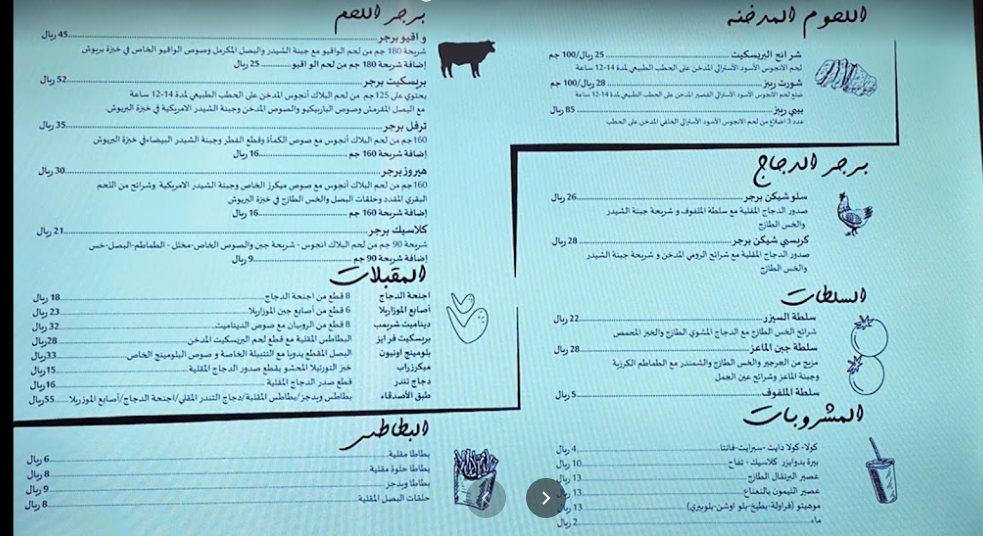 اللحوم المدخنه
شرائح البريسكيت 25 ريال/100 جم
لحم الانجوس الأسود الأسترالي المدخن على الحطب الطبيعي لمدة 14-12 ساعة
شورت ريبز 28 ريال/100 جم
ضلع لحم الانجوس الأسود الأسترالي القصير المدخن على الحطب الطبيعي لمدة 14-12 ساعة
بيبي ريبز 85 ريال
عدد 3 اضلاع من لحم الانجوس الأسود الأسترالي الخلفي المدخن على الحطب
برجر الدجاج
سلو شيكن برجر 26 ريال
صدور الدجاج المقلية مع سلطة الملفوف و شريحة جبنة الشيدر
والخس الطازج
كرسبي شيكن برجر 28 ريال
صدور الدجاج المقلية مع شرائح الرومي المدخن و شريحة جبنة الشيدر
والخس الطازج
السلطات
سلطة السيزر 22 ريال
شرائح الخس الطازج مع الدجاج المشوي الطازج والخبز المحمص
سلطة جبن الماعز 28 ريال
مزيج من الجرجير والخس الطازج والشمندر مع الطماطم الكرزية
وجبنة الماعز وشرائح عين الجمل
سلطة الملفوف 5 ريال
المشروبات
كولا- كولا دايت -سبرايت-فانتا 4 ريال
بيرة بدوايزر كلاسيك - تفاح 10 ريال
عصير البرتقال الطازج 13 ريال
عصير الليمون بالنعناع 13 ريال
موهيتو (فراولة-بطيخ-بلو اوشن-بلوبيري) 13 ريال
ماء 2 ريال
برجر اللحم
واقيو برجر 45 ريال
شريحة 180 جم من لحم الواقيو مع جبنة الشيدر والبصل المكرمل وصوص الواقيو الخاص في خبزة بريوش
إضافة شريحة 180 جم من لحم الواقيو 25 ريال
بريسكيت برجر 52 ريال
يحتوي على 125 جم من لحم البلاك أنجوس المدخن على الحطب الطبيعي لمدة 14-12 ساعة
مع البصل المقرمش وصوص الباربيكيو والصوص المدخن وجبنة الشيدر الامريكية في خبزة البريوش.
ترفل برجر 35 ريال
160جم من لحم البلاك أنجوس مع صوص الكمأة وقطع الفطر وجبنة الشيدر البيضاءفي خبزة البريوش
إضافة شريحة 160 جم 16 ريال
هيروز برجر 30 ريال
160جم من لحم البلاك أنجوس مع صوص ميكرز الخاص وجبنة الشيدر الامريكية وشرائح من اللحم
البقري المقدد وحلقات البصل والخس الطازج في خبزة البريوش
إضافة شريحة 160 جم 16 ريال
كلاسيك برجر 21 ريال
شريحة 90 جم من لحم البلاك انجوس - شريحة جبن والصوص الخاص-مخلل - الطماطم-البصل-خس
إضافة شريحة 90 جم 9 ريال
المقبلات
اجنحة الدجاج 8 قطع من اجنحة الدجاج 18 ريال
أصابع الموزاريلا 6 قطع من أصابع جبن الموزاريلا 23 ريال
ديناميت شريمب 8 قطع من الروبيان مع صوص الديناميت 32 ريال
بريسكيت فرايز البطاطس المقلية مع قطع لحم البريسكيت المدخن 28ريال
بلومينج اونيون البصل المقطع يدويا مع التتبيلة الخاصة و صوص البلومينج الخاص 33ريال
ميكرزراب خبز التورتيلا المحشو بقطع صدور الدجاج المقلية 15ريال
دجاج تندر قطع صدر الدجاج المقلية 16ريال
طبق الأصدقاء بطاطس ويدجز/بطاطس المقلية/دجاج التندر المقلي/اجنحة الدجاج/أصابع الموزريلا 55ريال
البطاطس
بطاطا مقلية 6 ريال
بطاطا حلوة مقلية 8 ريال
بطاطا ويدجز 9 ريال
حلقات البصل المقلية 8 ريال